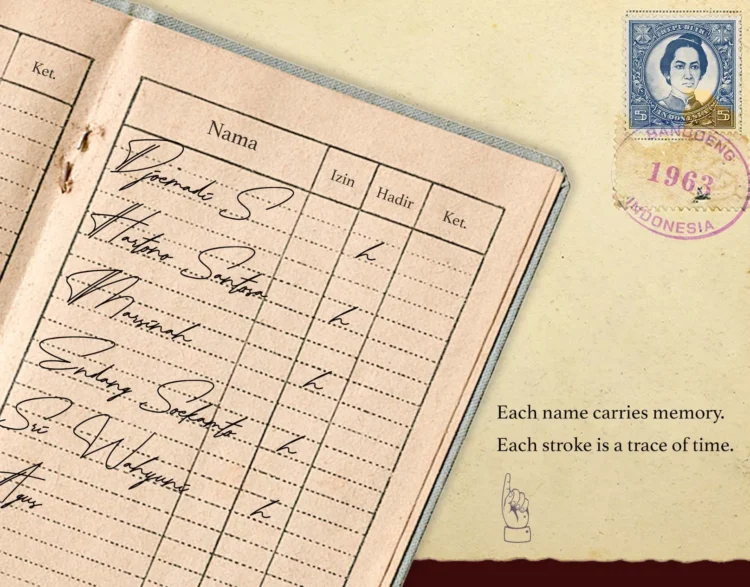 Ket.
Nama
Izin
Hadir
Ket.
Djoemadi S
h
Hartono Santosa
h
Marsinah
h
Endang Soekamto
h
Sri Wahyuni
h
Agus
REPUBLIK
5 INDONESIA 5
BANDOENG
1963
INDONESIA
Each name carries memory.
Each stroke is a trace of time.